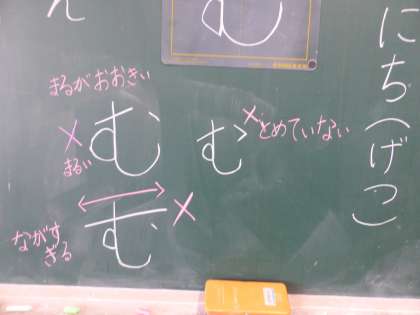 にち(げこ
む
まるがおおきい
×
む
まるい
む
×
とめていない
む
×
ながす
ぎる